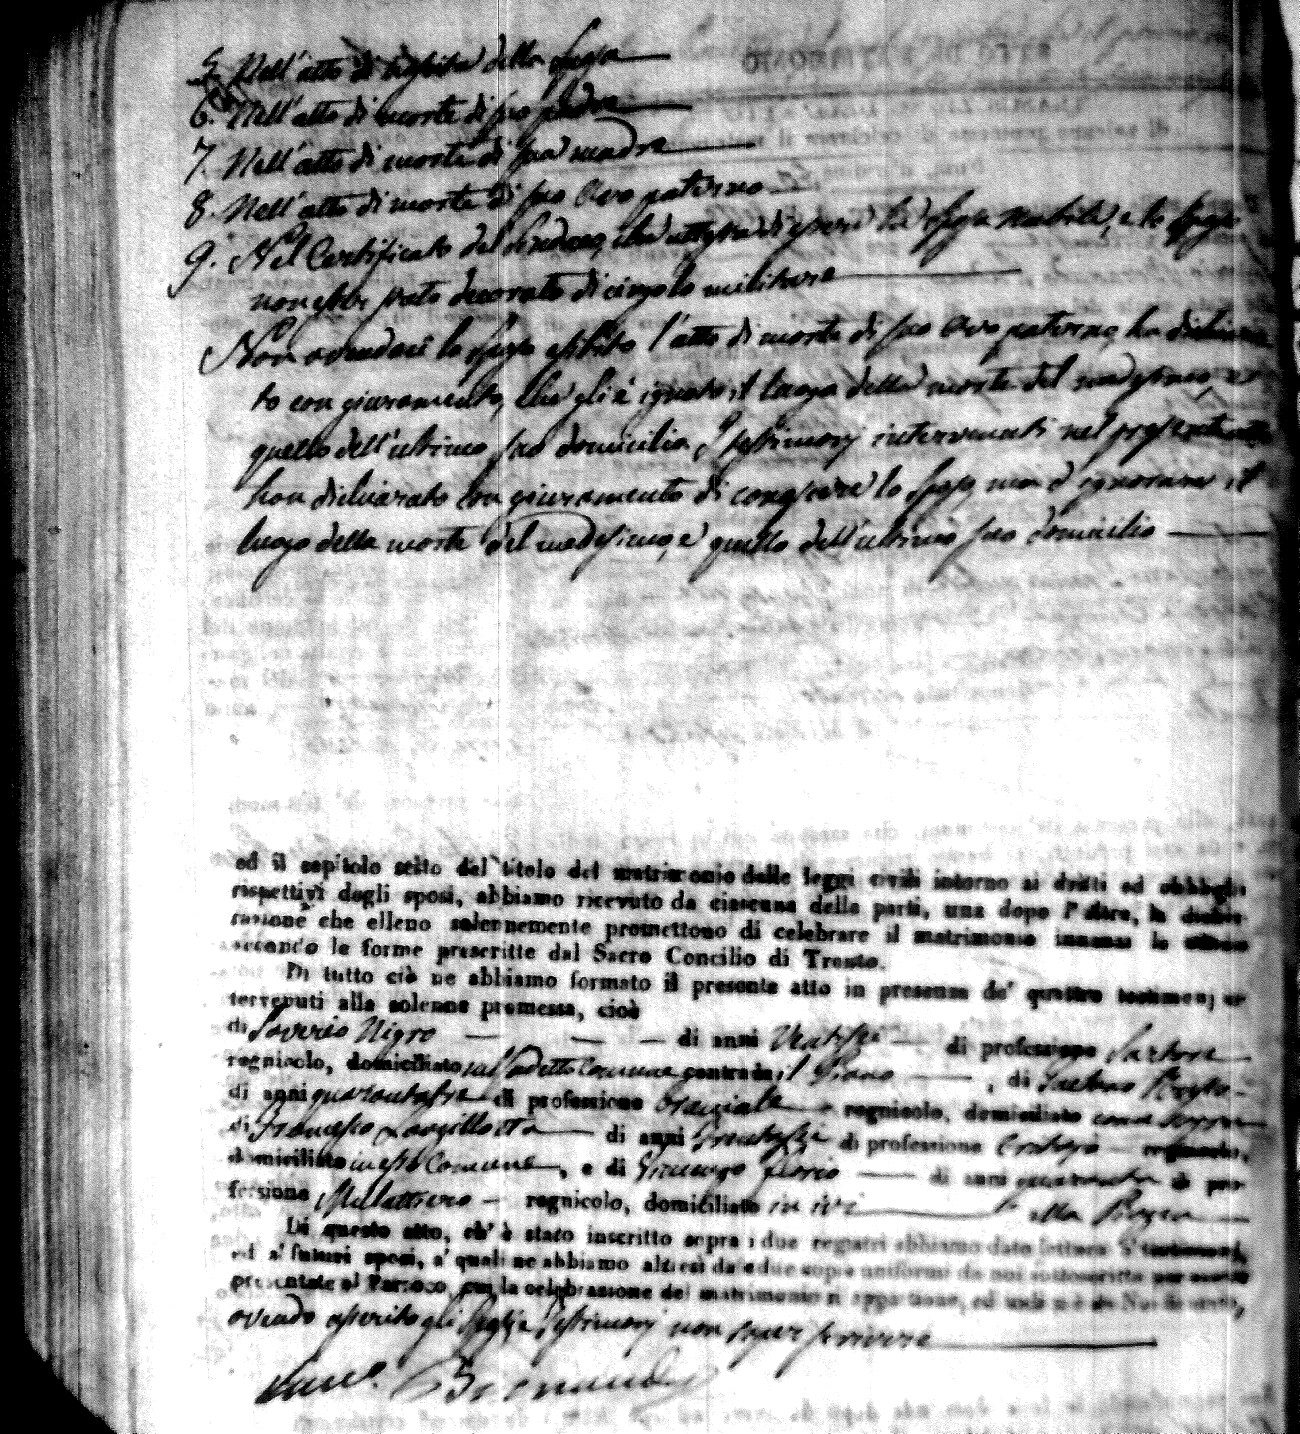 5. Nell'atto di nascita della sposa
6. Nell'atto di morte di suo padre
7. Nell'atto di morte di sua madre
8. Nell'atto di morte di suo Avo paterno
9. Nel Certificato del Sindaco, che attesta di essere la sposa nubile, e lo sposo
non esser stato decorato di cingolo militare
Non avendosi lo sposo esibito l'atto di morte di suo Avo paterno, ha dichiara
to con giuramento, che gli è ignoto il luogo della morte del medesimo, e
quello dell'ultimo suo domicilio, I testimonj intervenuti nel presente atto
han dichiarato con giuramento di conoscere lo sposo, ma d'ignorare il
luogo della morte del medesimo, e quello dell'ultimo suo domicilio
ed il capitolo sesto del titolo del matrimonio delle leggi civili intorno ai dritti ed obblighi
rispettivi degli sposi, abbiamo ricevuto da ciascuna delle parti, una dopo l'altra, la dichia-
razione che elleno solennemente promettono di celebrare il matrimonio innanzi la Chiesa
secondo le forme prescritte dal Sacro Concilio di Trento.
Di tutto ciò ne abbiamo formato il presente atto in presenza de' quattro testimonj in
tervenuti alla solenne promessa, cioè
di Saverio Nigro di anni di professione Sartore
regnicolo, domiciliato Comune contrada il Piano, di Gaetano
di anni di professione regnicolo, domiciliato come sopra
di Francesco di anni di professione regnicolo,
domiciliato in esso Comune, e di Florio di anni quaranta di pro
fessione regnicolo, domiciliato in ivi alla
Di questo atto, ch' è stato inscritto sopra i due registri abbiamo dato lettura a' testimonj,
ed a' futuri sposi, a' quali ne abbiamo altresì date due copie uniformi da noi sottoscritte per essere
presentate al Parroco, cui la celebrazione del matrimonio si appartiene, ed indi si è da Noi firmato,
avendo asserito gli Sposi, e Testimonj non saper scrivere